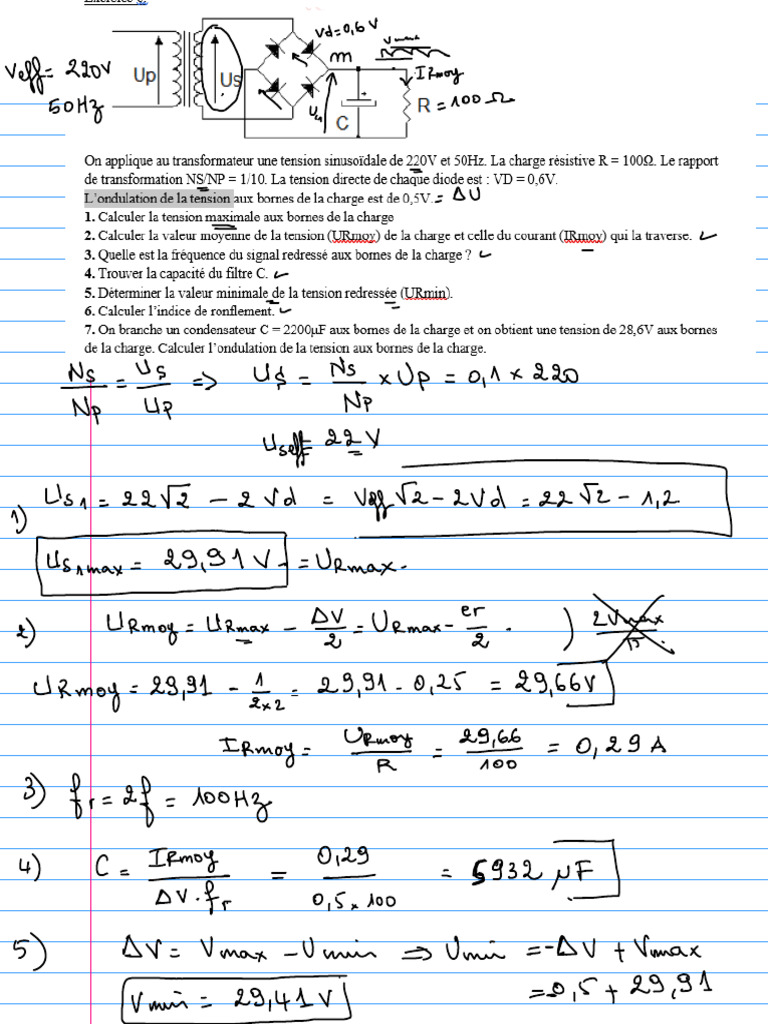 Exercice 8:
Vd=0,6V
Vmax
Veff = 220V
Up
Us
m
IRmoy
50Hz
C
R = 100Ω
On applique au transformateur une tension sinusoïdale de 220V et 50Hz. La charge résistive R = 100Ω. Le rapport
de transformation NS/NP = 1/10. La tension directe de chaque diode est : VD = 0,6V.
L'ondulation de la tension aux bornes de la charge est de 0,5V. = ΔU
1. Calculer la tension maximale aux bornes de la charge
2. Calculer la valeur moyenne de la tension (URmoy) de la charge et celle du courant (IRmoy) qui la traverse.
3. Quelle est la fréquence du signal redressé aux bornes de la charge ?
4. Trouver la capacité du filtre C.
5. Déterminer la valeur minimale de la tension redressée (URmin).
6. Calculer l'indice de ronflement.
7. On branche un condensateur C = 2200µF aux bornes de la charge et on obtient une tension de 28,6V aux bornes
de la charge. Calculer l'ondulation de la tension aux bornes de la charge.
Ns/Np = Us/Up => Us = Ns/Np × Up = 0,1 × 220
Useff = 22 V
1) Us1 = 22√2 - 2Vd = Veff√2 - 2Vd = 22√2 - 1,2
Us1max = 29,91V = URmax.
2) URmoy = URmax - ΔV/2 = URmax - er/2 . ) 2Vmax/π
URmoy = 29,91 - 1/2×2 = 29,91 - 0,25 = 29,66V
IRmoy = URmoy/R = 29,66/100 = 0,29 A
3) fr = 2f = 100Hz
4) C = IRmoy/ΔV.fr = 0,29/0,5×100 = 5932 µF
5) ΔV = Vmax - Vmin => Vmin = -ΔV + Vmax
= 0,5 + 29,91
Vmin = 29,41 V